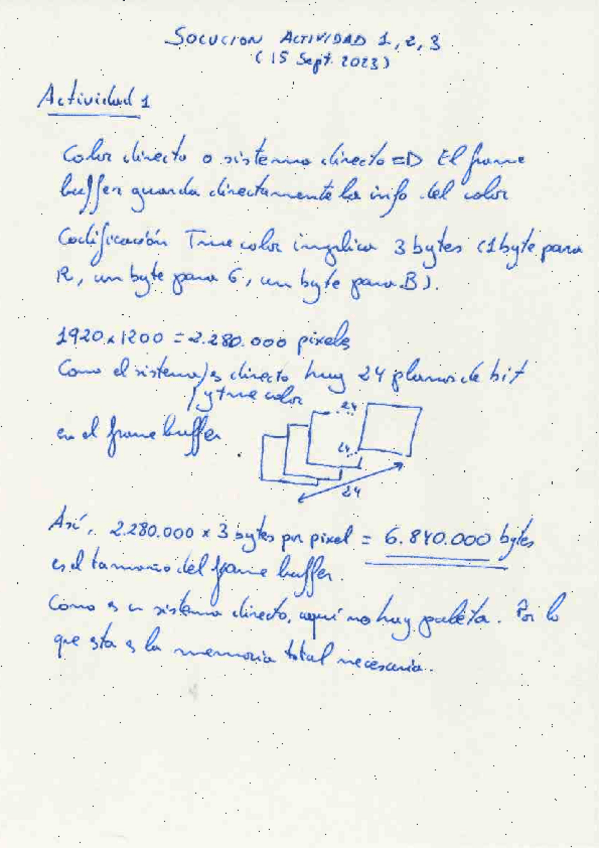 SOLUCION ACTIVIDAD 1, 2, 3
(15 Sept. 2023)
Actividad 1
Color directo o sistema directo => El frame
buffer guarda directamente la info del color
Codificación True color implica 3 bytes (1 byte para
R, un byte para G, un byte para B).
1920 x 1200 = 2.280.000 pixels
Como el sistema es directo hay 24 planos de bit
y true color
en el frame buffer
24
24
24
Así, 2.280.000 x 3 bytes por pixel = 6.840.000 bytes
es el tamaño del frame buffer.
Como es un sistema directo, aquí no hay paleta. Por lo
que esta es la memoria total necesaria.